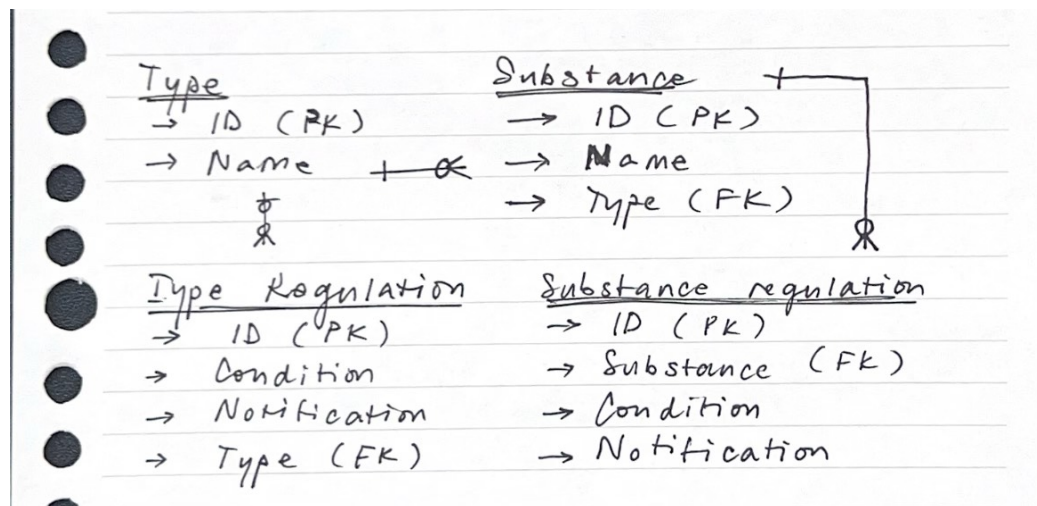 Type
→ ID (PK)
→ Name
Substance
→ ID (PK)
→ Name
→ Type (FK)
Type Regulation
→ ID (PK)
→ Condition
→ Notification
→ Type (FK)
Substance regulation
→ ID (PK)
→ Substance (FK)
→ Condition
→ Notification